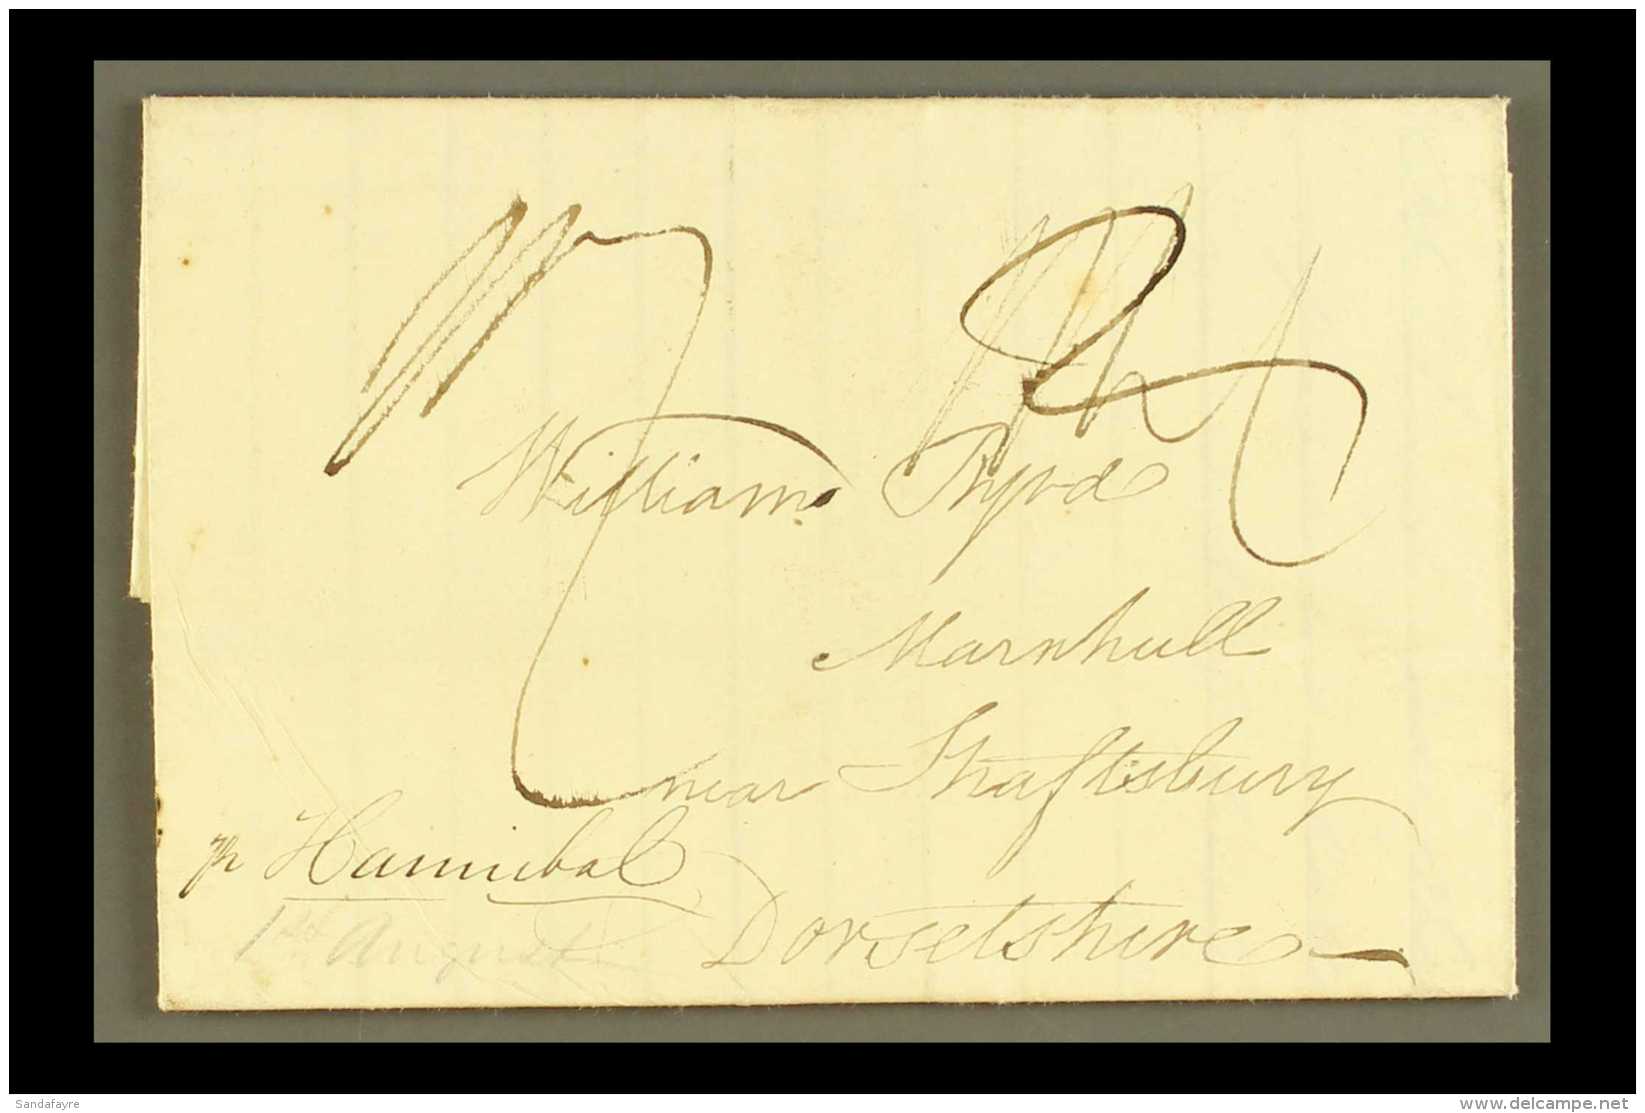 William
Marnhull
near Shaftsbury
pr Hannibal
Dorsetshire
1st August
Sandafayre
www.delcampe.net